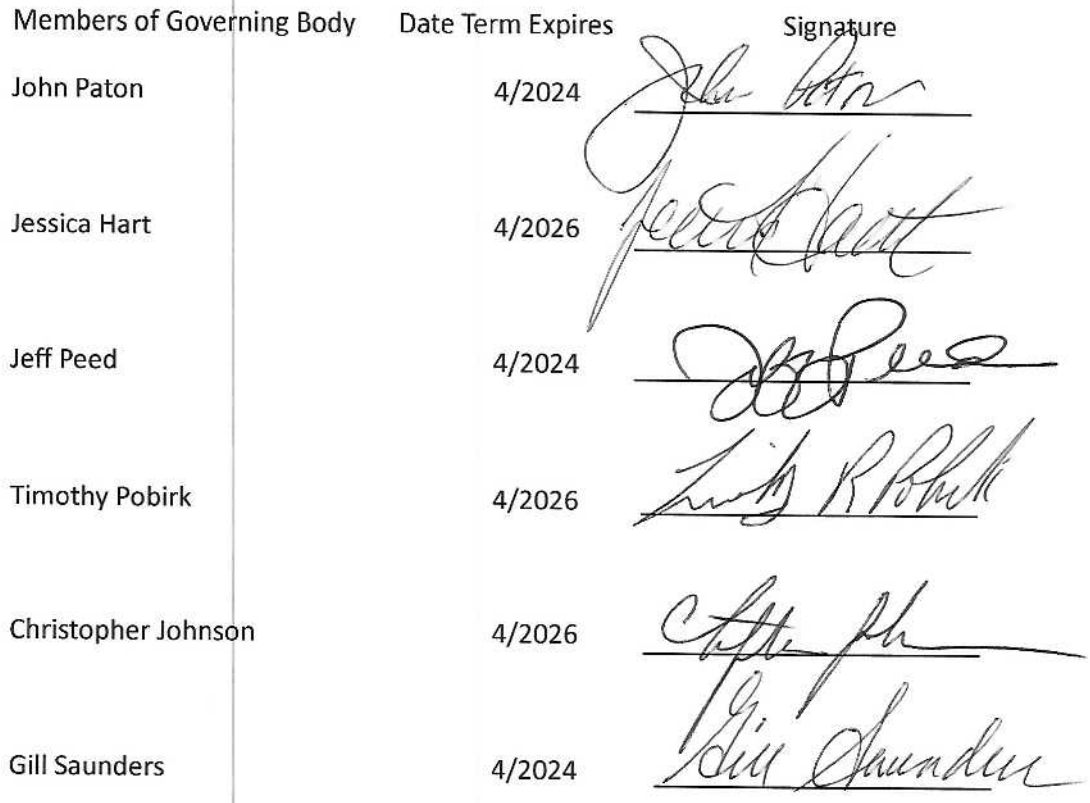 Members of Governing Body Date Term Expires Signature
John Paton 4/2024 John Paton
Jessica Hart 4/2026 Jessica Hart
Jeff Peed 4/2024 Jeff Peed
Timothy Pobirk 4/2026 Timothy R Pobirk
Christopher Johnson 4/2026
Gill Saunders 4/2024 Gill Saunders